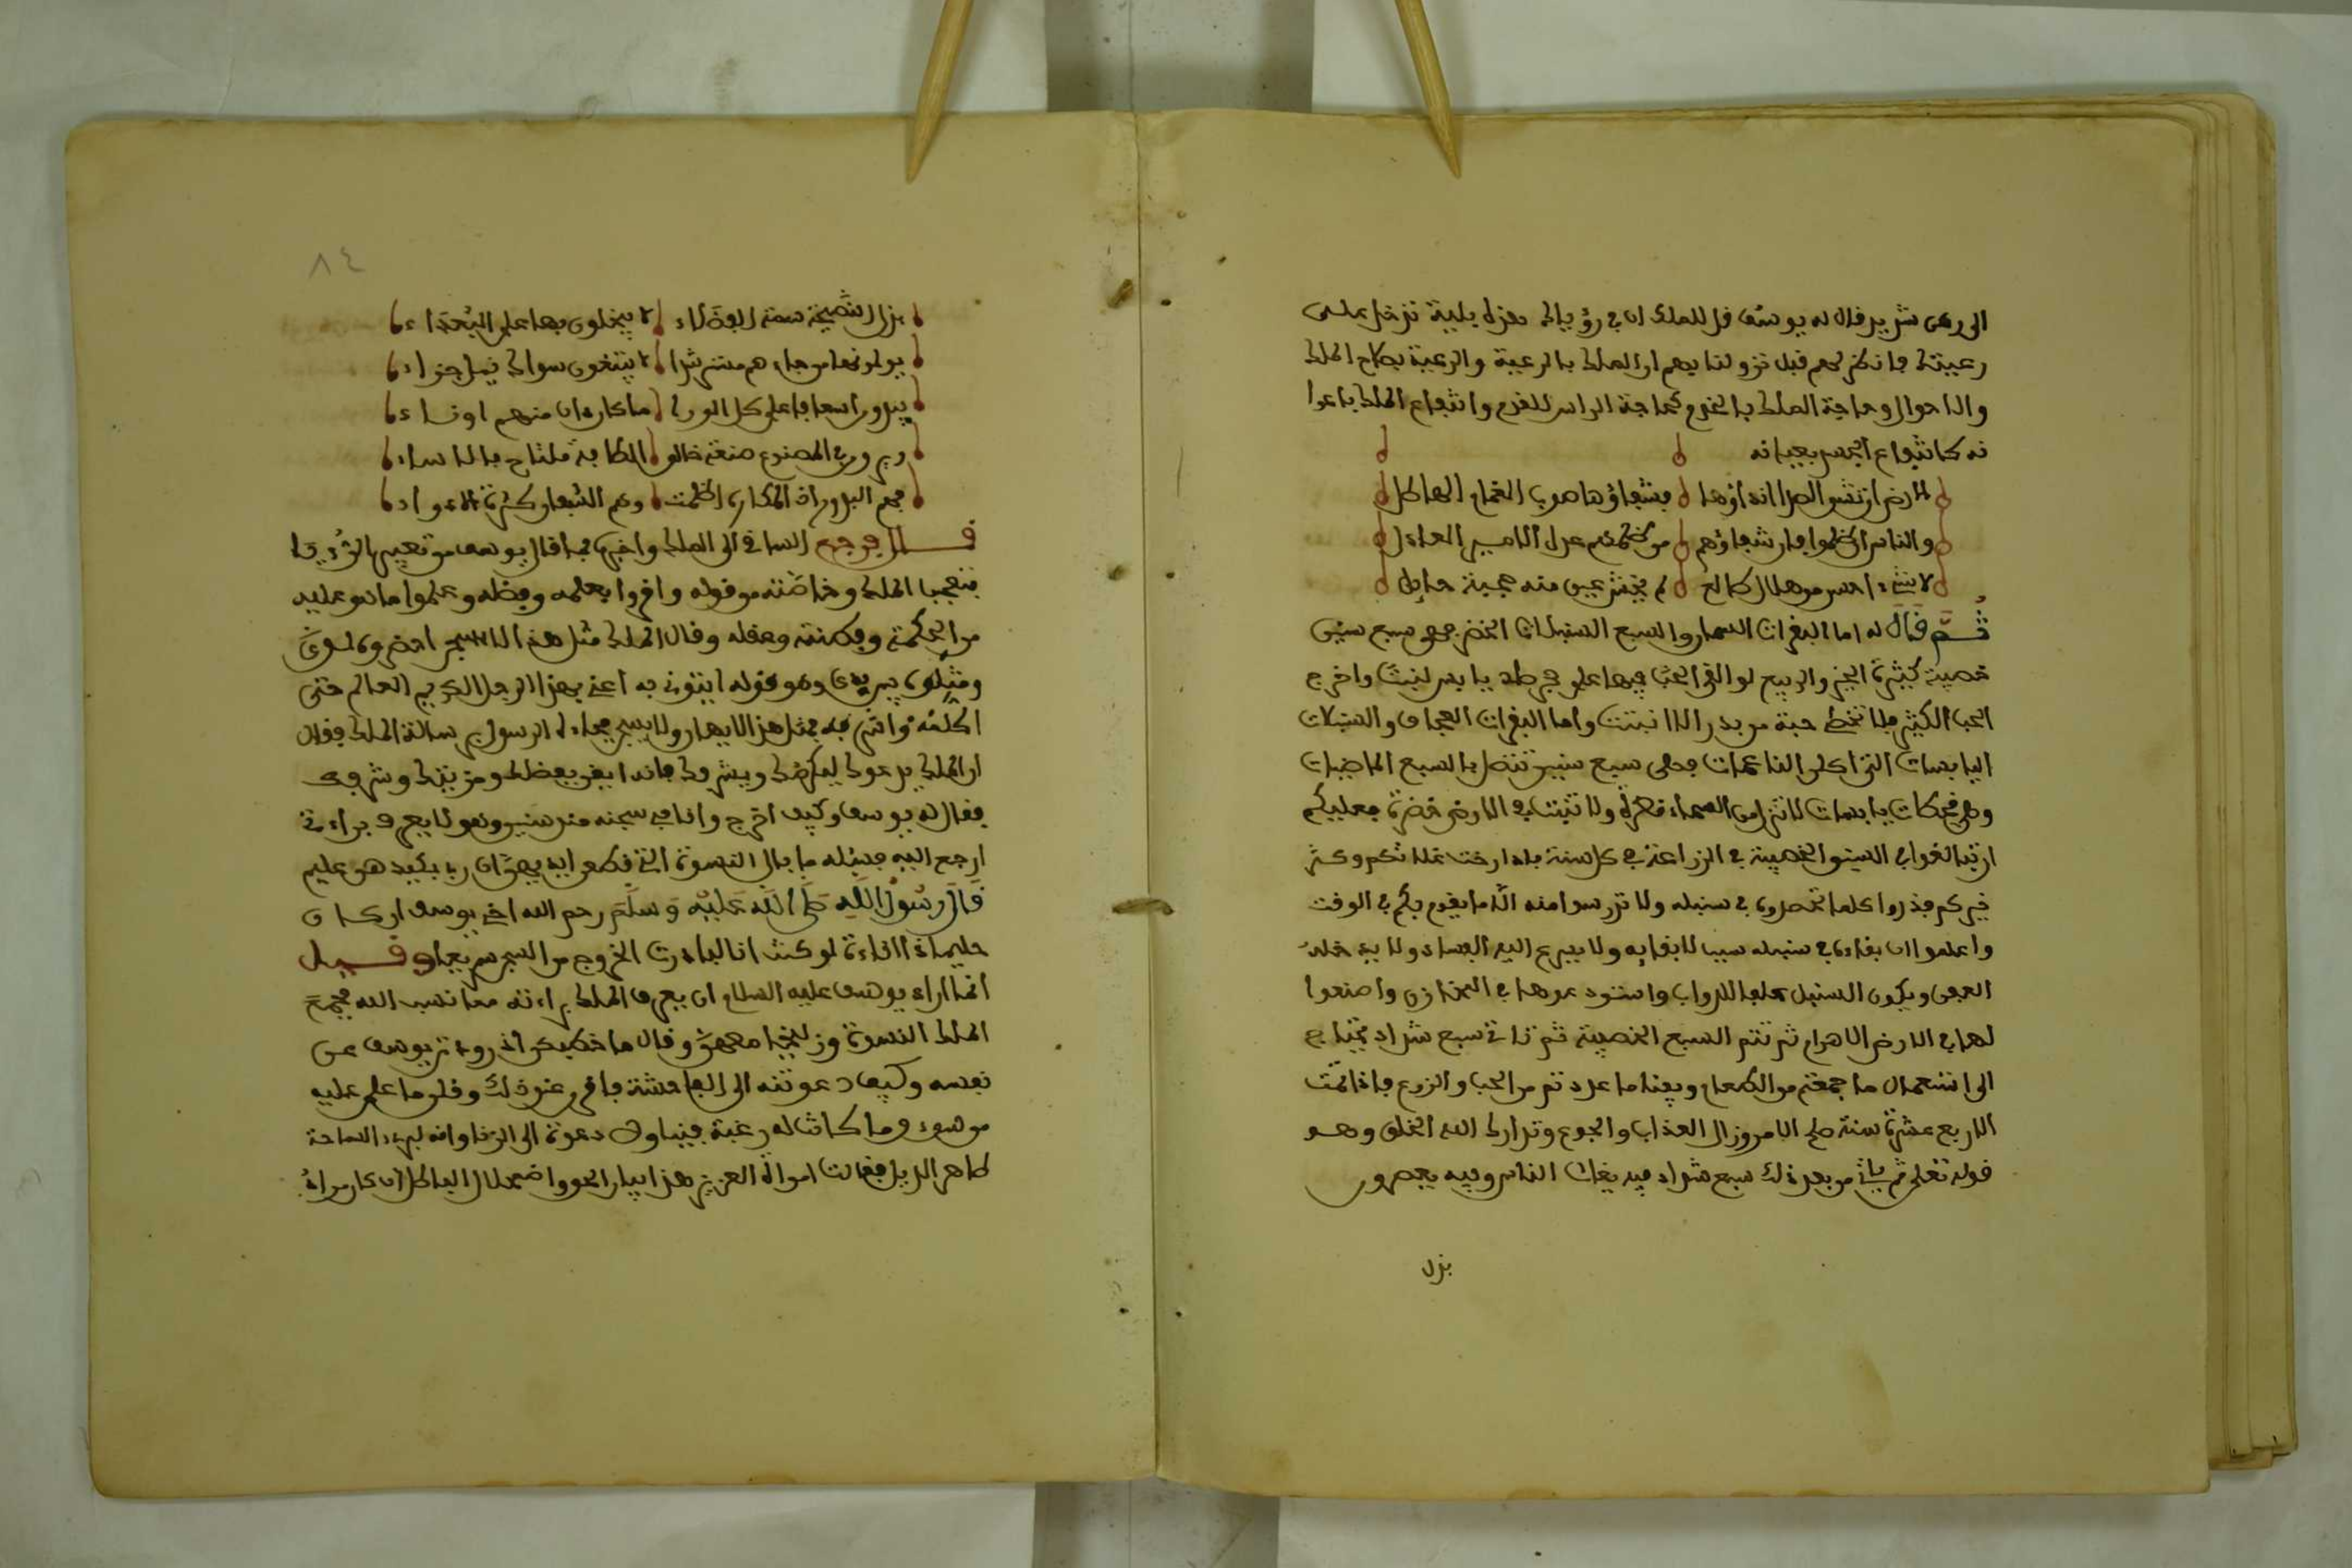 الى ركن شديد فقال له يوسف قل للملك ان في رؤياك هذه بلية تدخل على
رعيتك فانظر لهم قبل نزولها بهم ان الملك بالرعية والرعية بصلاح الملك
والاحوال وحاجة الملك بالخدم كحاجة الراس للقدم وانتفاع الملك باعوا
نه كانتفاع الجسر بعيانه
الارض ان تشو الصدا انداؤها فشفاؤها صوب الغمام الهاطل
والناس ان ظلموا فان شفاؤهم من ظلمهم عدل الامير العادل
لا شيء احسن من هلال طالع لم يخش عين منه هجية حايل
ثم قال له اما البقرات السمان والسبع السنبلات الخضر فهي سبع سنين
خصيبة كثيرة الخير والربيع لو القي الحب فيها على حجر صلد يابس لنبت واخرج
الحب الكثير فلا تخطئ حبة من بدر الا انبتت واما البقرات العجاف والسنبلات
اليابسات التي اكلن الناعمات فهي سبع سنين تتصل بالسبع الماضيات
وهي قحطات يابسات لا تنزل من السماء قطرة ولا تنبت في الارض خضرة فعليكم
ان تبالغوا في السنين الخصيبة في الزراعة في كل سنة فاذا رخت غلاتكم وكثر
خيركم فذروا كلما تحصدون في سنبله ولا تدرسوا منه الا ما يقوم بكم في الوقت
واعلموا ان بقاءه في سنبله سببا لابقايه ولا يسرع اليه الفساد ولا يدخله
العفن ويكون السنبل علفا للدواب واستودعوها في المخازن واصنعوا
لها في الارض الاهرام ثم تتم السبع الخصيبة ثم تاتي سبع شداد تحتاج
الى استعمال ما جمعتم من الطعام ويفنا ما عددتم من الحب والزرع فاذا تمت
الاربع عشرة سنة صلح الامر وزال العذاب والجوع وتدارك الله الخلق وهو
قوله تعلى ثم ياتي من بعد ذلك سبع شداد فيه يغاث الناس وفيه يعصرون
بذل
٨٤
بذل النصيحة سمة الفضلاء لا يبخلون بها على البعداء
يولونها من جاءهم مسترشدا لا يبتغون سواك فيها جزاء
يبدون اسعافا على كل الورى ما كان دان منهم او ناء
ويرون في المصنوع صنعة خالق الطافه ملتاح بالاساء
فهم البدور اذ الدياري اظلمت وهم الشفا ان كثرت الادواء
قال فرجع الساقي الى الملك واخبره بما قال يوسف من تعبير الرؤيا
فتعجب الملك وخاصته من قوله واقروا بعلمه وفضله وعلموا ما هو عليه
من الحكمة وفطنته وعقله وقال الملك مثل هذا لا يسجن احضروه لدي
ومثلوه بين يدي وهو قوله ايتوني به اعني بهذا الرجل الكريم العالم حتى
اكلمه واشرفه فمثل هذا لا يهان ولا يسجن فجاءه الرسول برسالة الملك فقال
ان الملك يدعوك ليكرمك ويشرفك فانه ايقن بفضلك ومزيتك وشرفك
فقال له يوسف وكيف اخرج وانا في سجنه منذ سنين وهو لا يعرف براءتي
ارجع اليه فسئله ما بال النسوة التي قطعن ايديهن ان ربي بكيدهن عليم
قال رسول الله صلى الله عليه وسلم رحم الله اخي يوسف ان كان
حليما ذا اناءة لو كنت انا لبادرت الخروج من السجن سريعا وقيل
انما اراد يوسف عليه السلام ان يعرف الملك براءته مما نسب اليه فجمع
الملك النسوة وزليخا معهن وقال ما خطبكن اذ راودتن يوسف عن
نفسه وكيف دعوتنه الى الفاحشة فاقررن عنو ذلك وقلن ما علم عليه
من سوء وما كانت له رغبة فينا ولا دعوة الى الزنا وانه لبرىء الساحة
طاهر الذيل فقالت امراة العزيز هذا بيان الحق واضمحلال الباطل ان كان مراة